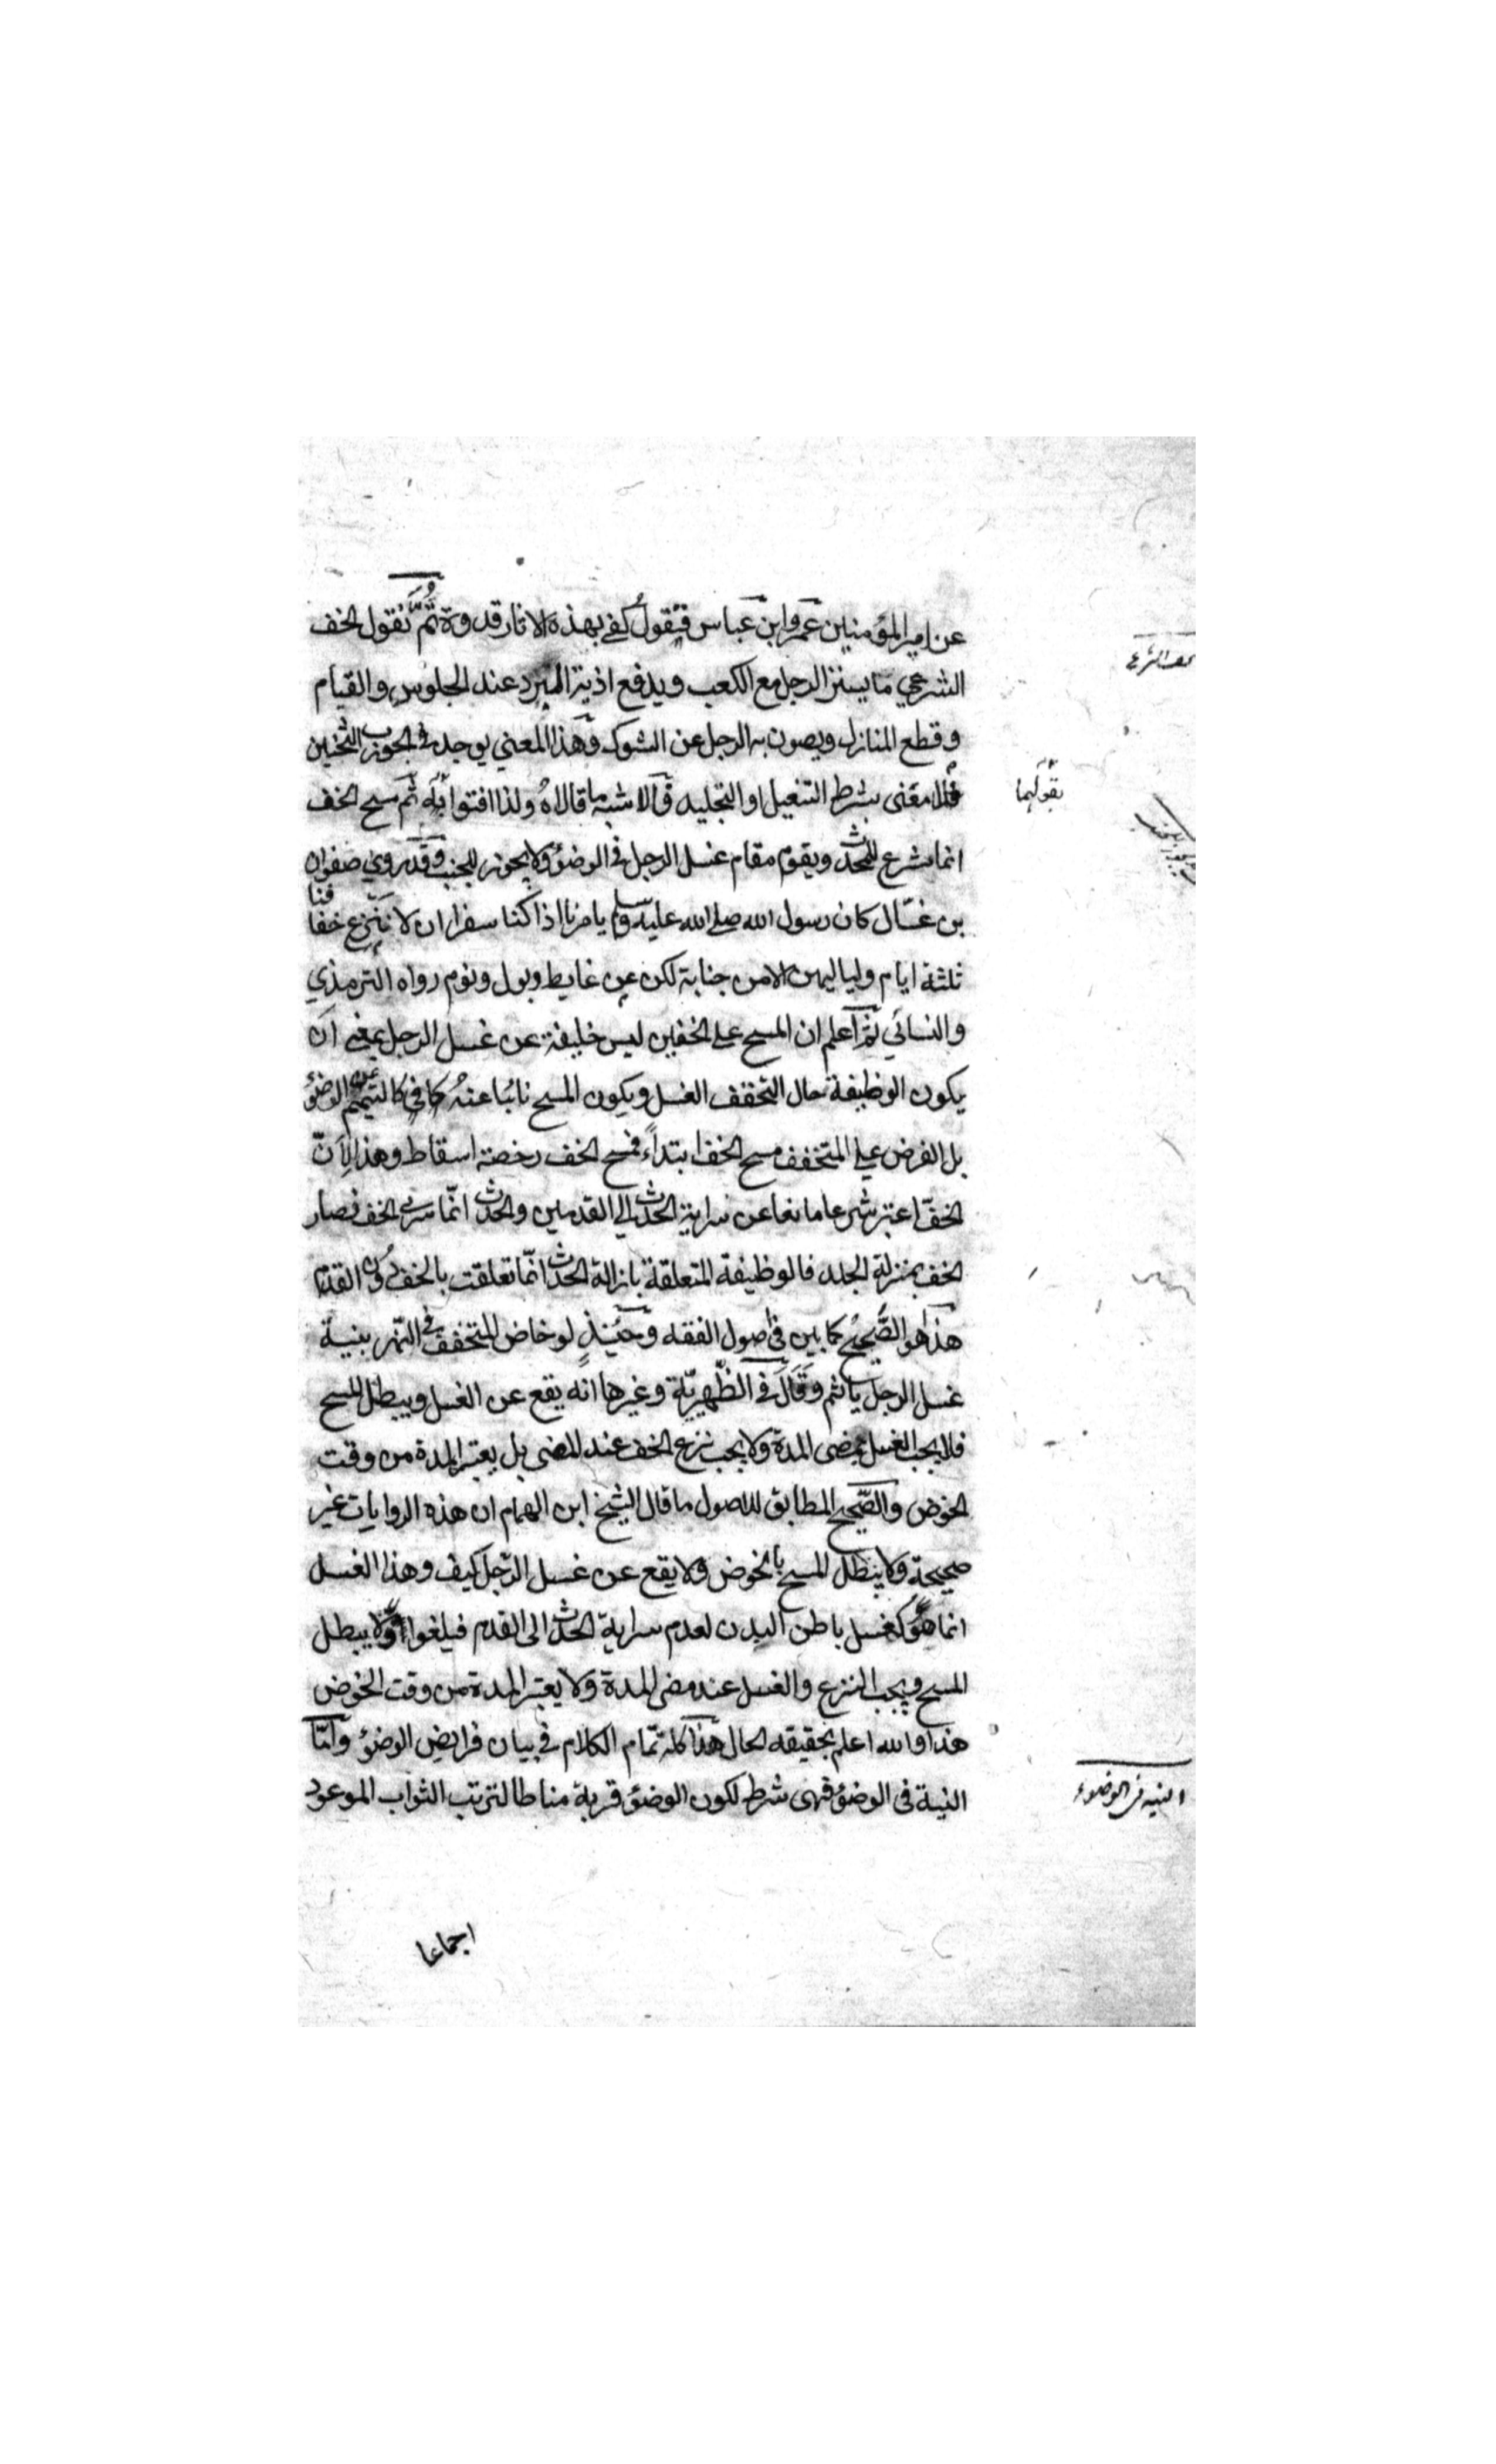 عن امير المؤمنين عمر وابن عباس فيقول كفى بهذه الاثار قدوة ثم نقول الخف
الشرعي ما يستر الرجل مع الكعب ويدفع اذية البرد عند الجلوس والقيام
وقطع المنازل ويصون به الرجل عن الشوك وهذا المعني يوجد في الجورب الثخين
فلا معنى بشرط التنعيل او التجليد فالاشبه ما قالاه ولذا افتوا به ثم مسح الخف
انما شرع للمحدث ويقوم مقام غسل الرجل في الوضوء ولا يجوز للجنب وقد روي صفوان
بن عسّال كان رسول الله صلى الله عليه وسلم يامرنا اذا كنا سفرا ان لا ننزع خفافنا
ثلثة ايام ولياليهن الا من جنابة لكن عن غايط وبول ونوم رواه الترمذي
والنسائي ثم اعلم ان المسح على الخفين ليس خليفة عن غسل الرجل بمعنى ان
يكون الوظيفة حال التخفف الغسل ويكون المسح نائبا عنه كما في كالتيمم عن الوضوء
بل الفرض علي المتخفف مسح الخف ابتداءً فمسح الخف رخصة اسقاط وهذا لانّ
الخفّ اعتبر شرعا مانعا عن سراية الحدث الي القدمين والحدث انّما سرى الخف فصار
الخف بمنزلة الجلد فالوظيفة المتعلقة بازالة الحدث انّما تعلقت بالخف دون القدم
هذا هو الصّحيح كما بين في اصول الفقه وحينئذٍ لو خاض المتخفف في النهر بنية
غسل الرجل ياثم وقال في الظّهيريّة وغيرها انه يقع عن الغسل ويبطل المسح
فلا يجب الغسل بمضى المدة ولا يجب نزع الخف عند المضى بل يعتبر المدة من وقت
الخوض والصّحيح المطابق للاصول ما قال الشيخ ابن الهمام ان هذه الروايات غير
صحيحة ولا يبطل المسح بالخوض ولا يقع عن غسل الرّجل كيف وهذا الغسل
انما هو كغسل باطن البدن لعدم سراية الحدث الى القدم فيلغوا ولا يبطل
المسح ويجب النزع والغسل عند مضى المدة ولا يعتبر المدة من وقت الخوض
هذا والله اعلم بحقيقه الحال هذا كله تمام الكلام في بيان فرايض الوضوء وامّا
النية فى الوضوء فهى شرط لكون الوضوء قربة مناطا لترتب الثواب الموعود
اجماعا
بقولهما
النيه فى الوضوء